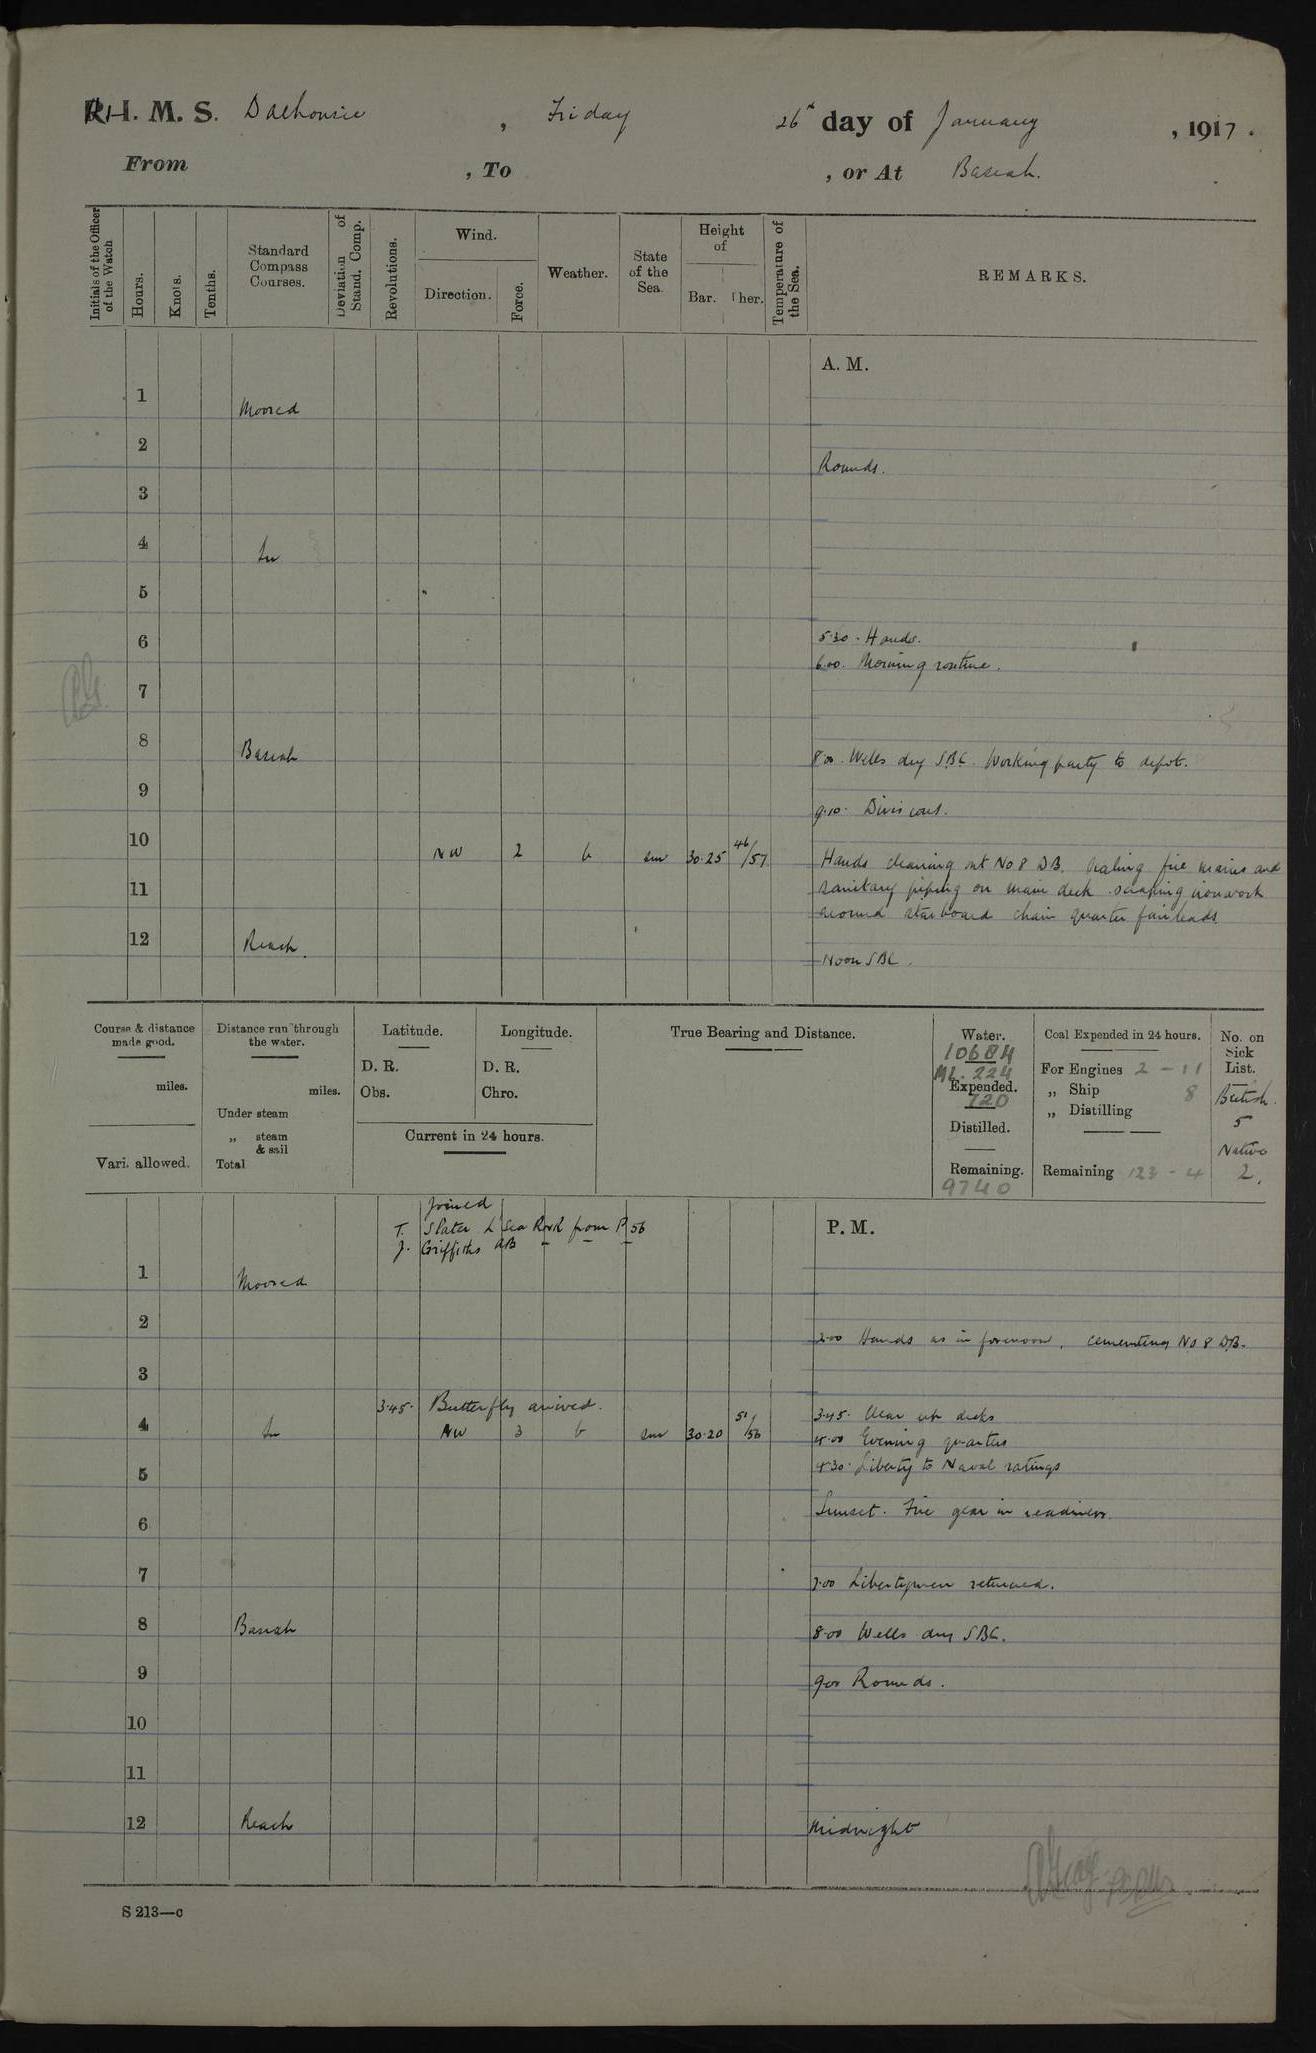 R.I.M.S. Dalhousie, Friday 26th day of January, 1917.
From , To , or At Basrah.
Initials of the Officer of the Watch
Hours.
Knots.
Tenths.
Standard Compass Courses.
Deviation of Stand. Comp.
Revolutions.
Wind.
Direction.
Force.
Weather.
State of the Sea.
Height of
Bar.
Ther.
Temperature of the Sea.
REMARKS.
A. M.
1
Moored
2
Rounds.
3
4
In
5
5.30. Hands.
6
6.00. Morning routine.
7
8
Basrah
8.00. Wells dry SBC. Working party to depot.
9
9.10. Divisions.
10
NW 2 b sm 30.25 46/57
Hands cleaning out No 8 DB. scaling fire mains and
11
sanitary piping on main deck. scraping ironwork
around starboard chain quarter fairleads.
12
Reach.
Noon SBC.
Course & distance made good.
miles.
Vari. allowed.
Distance run through the water.
miles.
Under steam
„ steam & sail
Total
Latitude.
D. R.
Obs.
Longitude.
D. R.
Chro.
Current in 24 hours.
True Bearing and Distance.
Water.
10684
ML. 224
Expended.
720
Distilled.
Remaining.
9740
Coal Expended in 24 hours.
For Engines 2 - 11
„ Ship 8
„ Distilling
Remaining 123 - 4
No. on Sick List.
British.
5
Native
2.
Joined
T. Slater L Sea RNR from P 56
J. Griffiths AB - - -
P. M.
1
Moored
2
2.00 Hands as in forenoon, cementing No 8 DB.
3
3.45. Butterfly arrived.
3.45. Clear up decks
4
In
NW 3 b sm 30.20 51/56
4.00 Evening quarters
4.30. Liberty to Naval ratings
5
Sunset. Fire gear in readiness.
6
7
7.00 Libertymen returned.
8
Basrah
8.00 Wells dry SBC.
9
9.00 Rounds.
10
11
12
Reach
Midnight
S 213—c